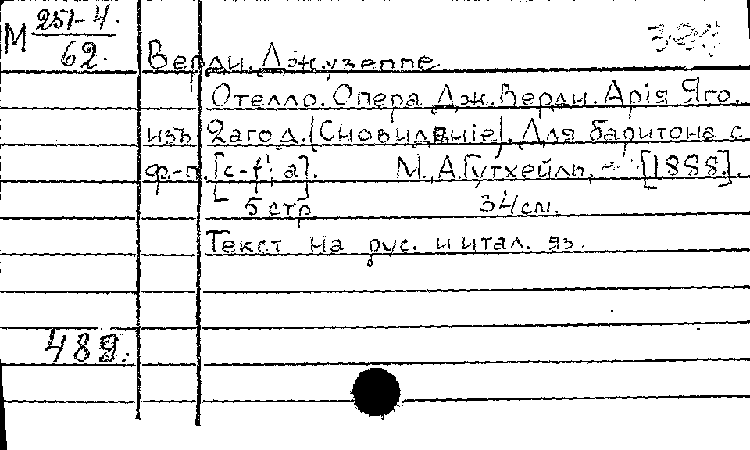 М 251-4.
62.
Верди. Джузеппе
Отелло. Опера Дж. Верди. Арія Яго.
изъ 2 аго д. (Сновидѣніе). Для баритона с
ф-п. [c-f'; a]. М., А. Гутхейль, [1888].
5 стр 34 см.
Текст на рус. и итал. яз.
489.